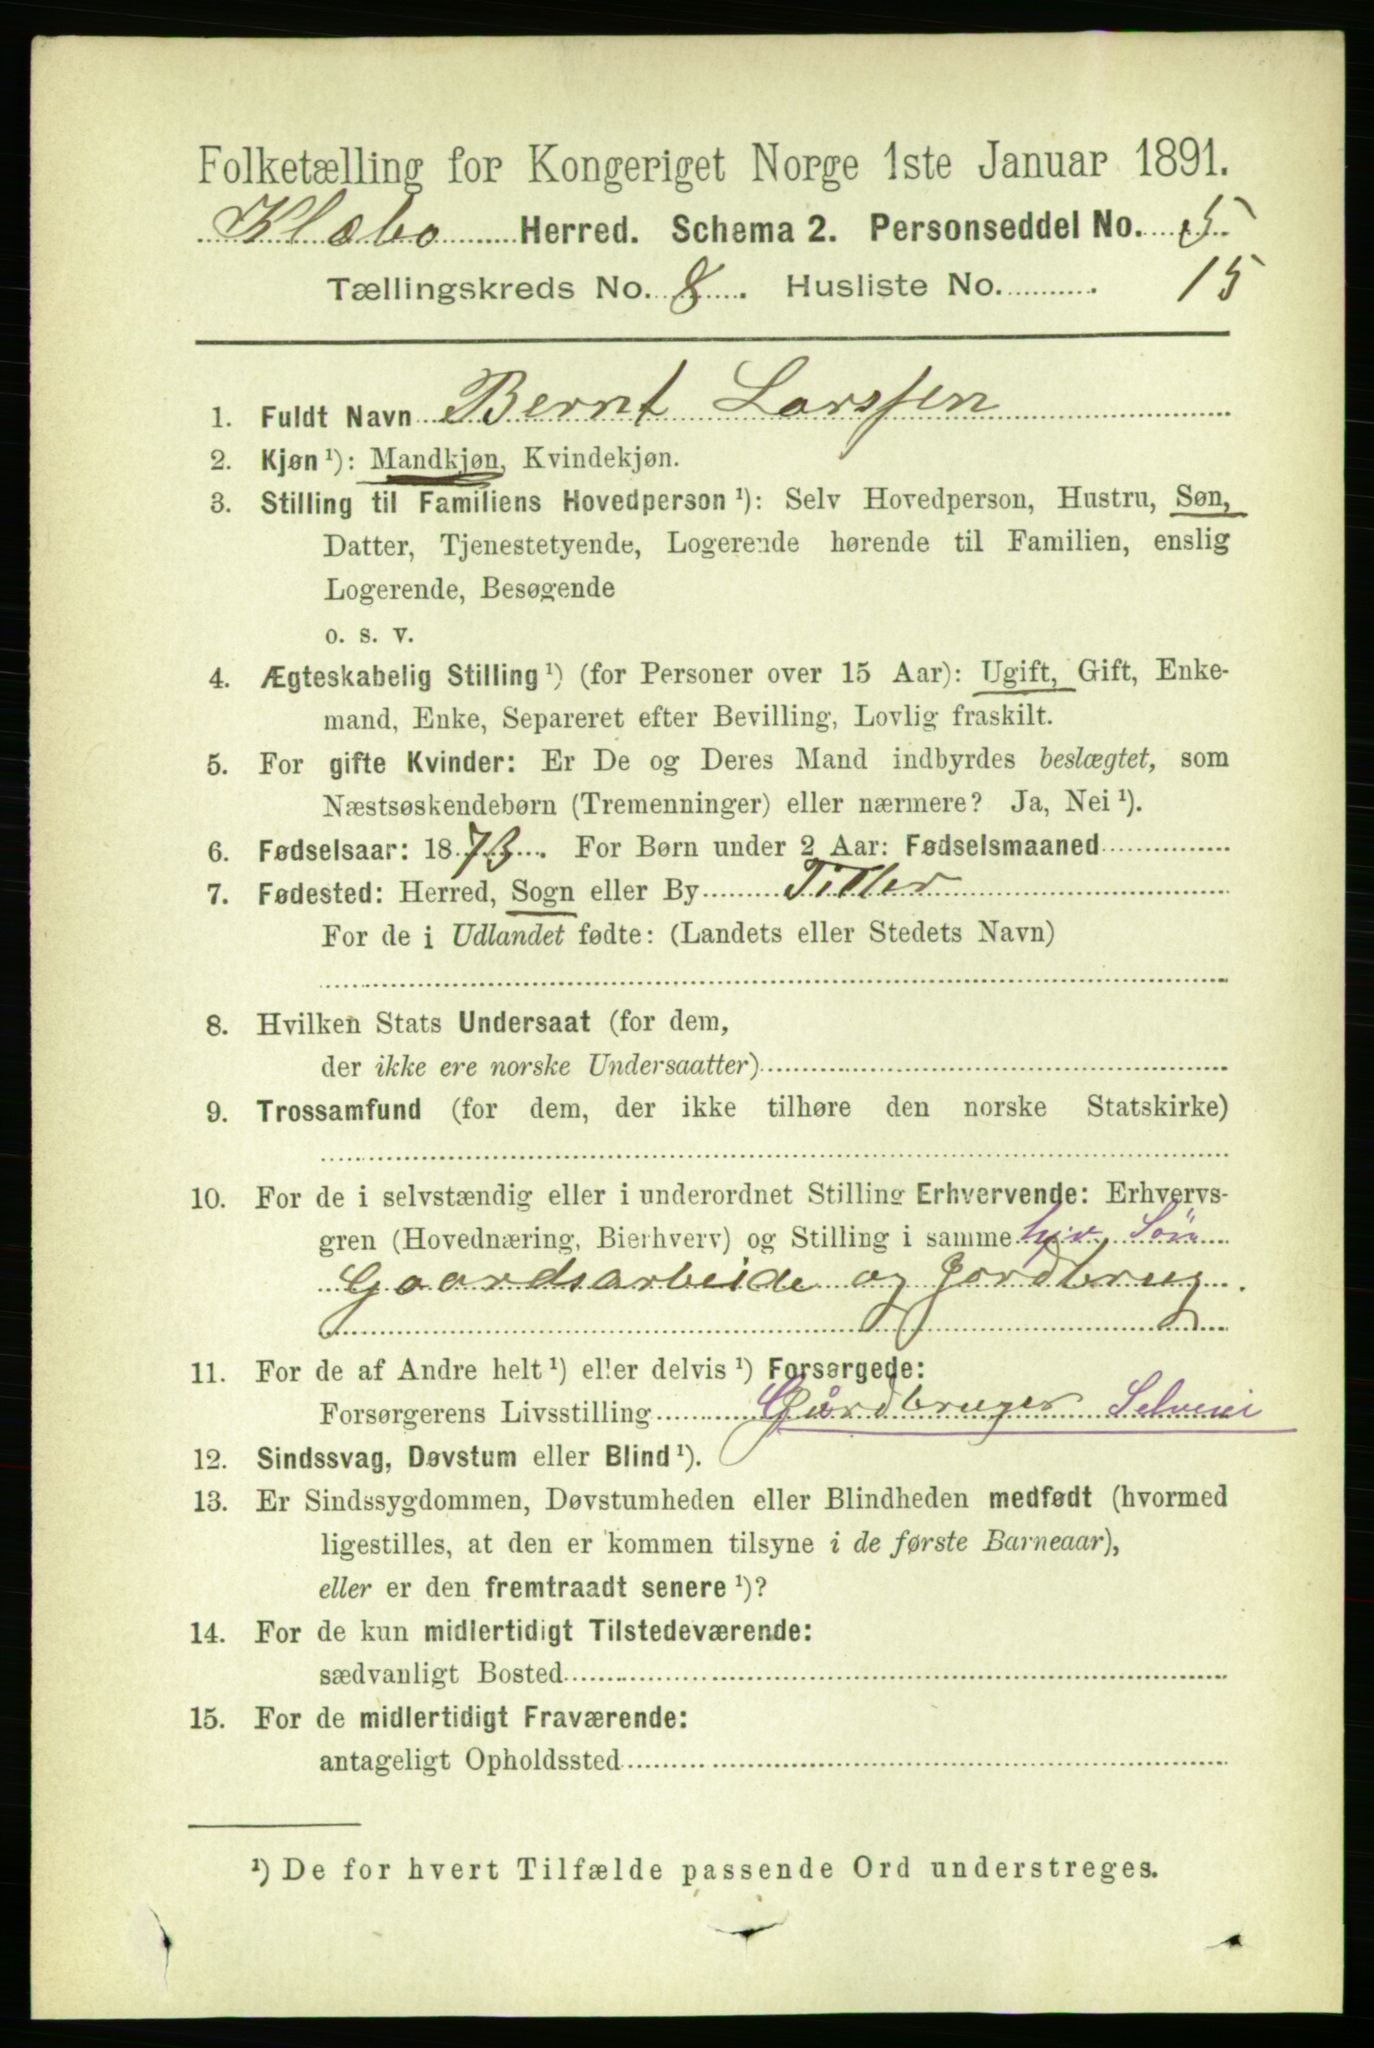 Folketælling for Kongeriget Norge 1ste Januar 1891.
Klæbo Herred. Schema 2. Personseddel No. 5
Tællingskreds No. 8. Husliste No. 15
1. Fuldt Navn Bernt Larssen
2. Kjøn ¹): Mandkjøn, Kvindekjøn.
3. Stilling til Familiens Hovedperson ¹): Selv Hovedperson, Hustru, Søn,
Datter, Tjenestetyende, Logerende hørende til Familien, enslig
Logerende, Besøgende
o. s. v.
4. Ægteskabelig Stilling ¹) (for Personer over 15 Aar): Ugift, Gift, Enke-
mand, Enke, Separeret efter Bevilling, Lovlig fraskilt.
5. For gifte Kvinder: Er De og Deres Mand indbyrdes beslægtet, som
Næstsøskendebørn (Tremenninger) eller nærmere? Ja, Nei ¹).
6. Fødselsaar: 1873. For Børn under 2 Aar: Fødselsmaaned
7. Fødested: Herred, Sogn eller By Tiller
For de i Udlandet fødte: (Landets eller Stedets Navn)
8. Hvilken Stats Undersaat (for dem,
der ikke ere norske Undersaatter)
9. Trossamfund (for dem, der ikke tilhøre den norske Statskirke)
10. For de i selvstændig eller i underordnet Stilling Erhvervende: Erhvervs-
gren (Hovednæring, Bierhverv) og Stilling i samme Søn
Gaardsarbeide og Jordbrug.
11. For de af Andre helt ¹) eller delvis ¹) Forsørgede:
Forsørgerens Livsstilling Gårdbruger Selveier
12. Sindssvag, Døvstum eller Blind ¹).
13. Er Sindssygdommen, Døvstumheden eller Blindheden medfødt (hvormed
ligestilles, at den er kommen tilsyne i de første Barneaar),
eller er den fremtraadt senere ¹)?
14. For de kun midlertidigt Tilstedeværende:
sædvanligt Bosted
15. For de midlertidigt Fraværende:
antageligt Opholdssted
¹) De for hvert Tilfælde passende Ord understreges.